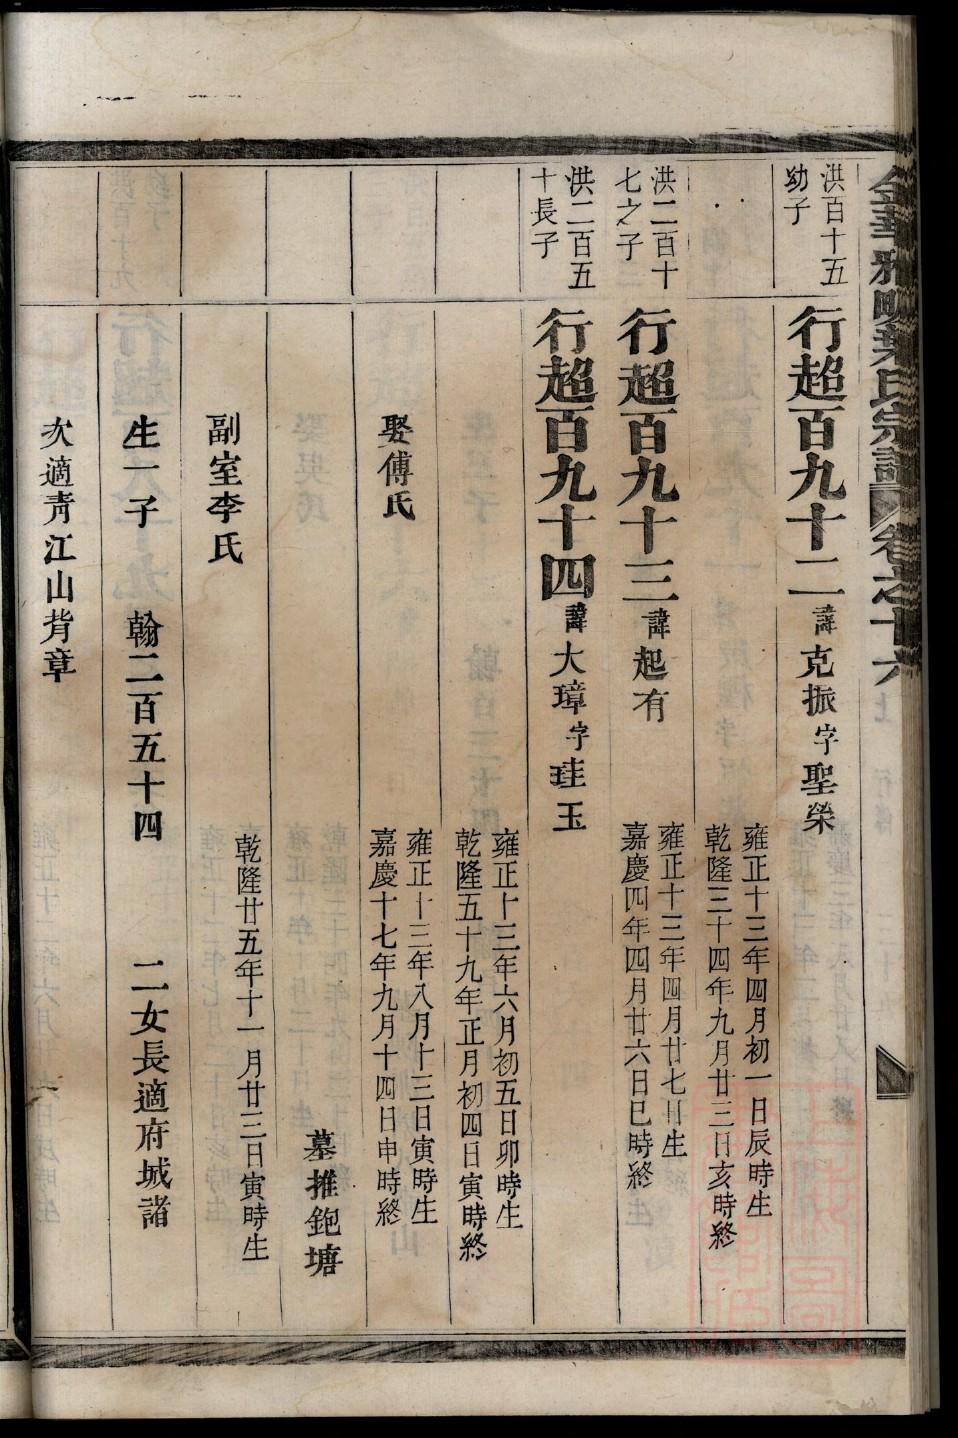 金華雅畈葉氏宗譜 卷之十六上 行傳
洪百十五
幼子
行超百九十二 諱克振字聖榮
雍正十三年四月初一日辰時生
乾隆三十四年九月廿三日亥時終
洪二百十
七之子
行超百九十三 諱起有
雍正十三年四月廿七日生
嘉慶四年四月廿六日巳時終
洪二百五
十長子
行超百九十四 諱大璋字珪玉
雍正十三年六月初五日卯時生
乾隆五十九年正月初四日寅時終
娶傅氏
雍正十三年八月十三日寅時生
嘉慶十七年九月十四日申時終
墓推鉋塘
副室李氏
乾隆廿五年十一月廿三日寅時生
生一子 翰二百五十四 二女長適府城諸
次適青江山背章